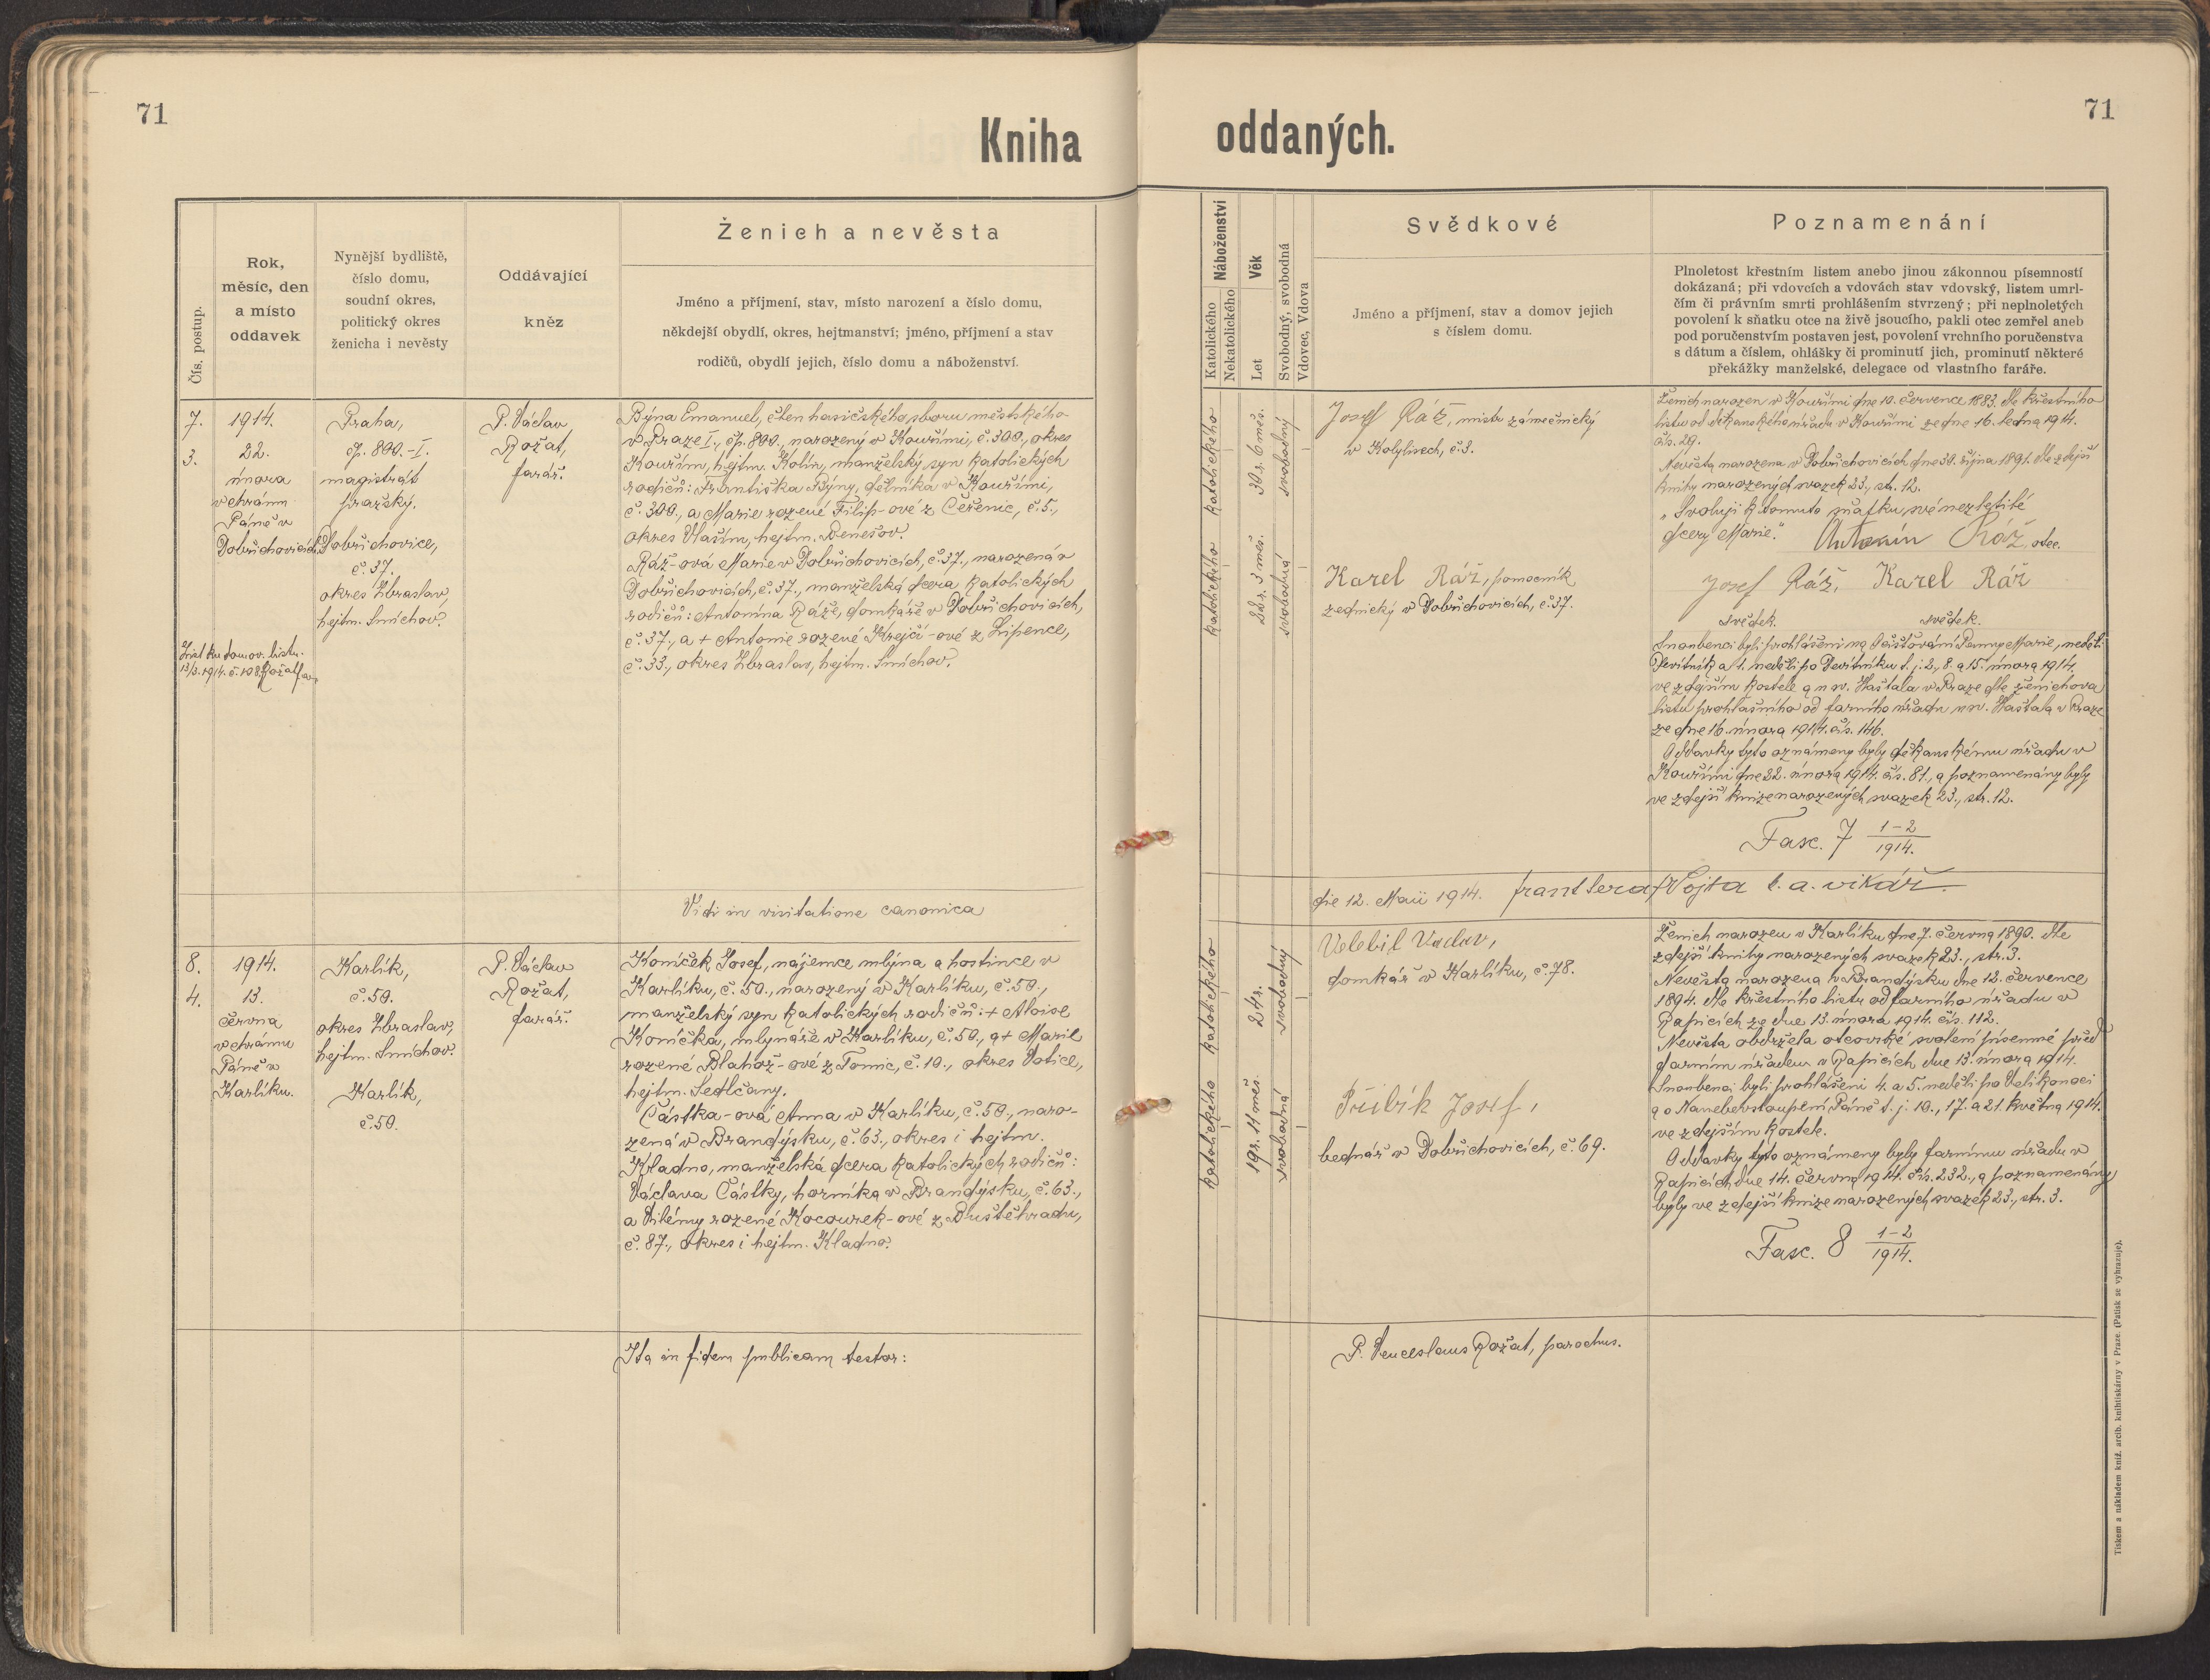 71
Kniha
Čís. postup.
Rok,
měsíc, den
a místo
oddavek
Nynější bydliště,
číslo domu,
soudní okres,
politický okres
ženicha i nevěsty
Oddávající
kněz
Ženich a nevěsta
Jméno a příjmení, stav, místo narození a číslo domu,
někdejší obydlí, okres, hejtmanství; jméno, příjmení a stav
rodičů, obydlí jejich, číslo domu a náboženství.
7.
3.
1914.
22.
února
v chrámu
Páně v
Dobřichovicích.
Praha,
čp. 800.-I.
magistrát
pražský.
Dobřichovice,
č. 37.
okres Zbraslav,
hejtm. Smíchov.
P. Václav
Rožat,
farář.
Býna Emanuel, člen hasičského sboru městského
v Praze I., čp. 800., narozený v Kouřimi, č. 300., okres
Kouřim, hejtm. Kolín, manželský syn katolických
rodičů: Františka Býny, dělníka v Kouřimi,
č. 300., a Marie rozené Filip-ové z Čeřenic, č. 5.,
okres Vlašim, hejtm. Benešov.
Ráž-ová Marie v Dobřichovicích, č. 37., narozená v
Dobřichovicích, č. 37., manželská dcera katolických
rodičů: Antonína Ráže, domkáře v Dobřichovicích,
č. 37., a + Antonie rozené Krejčí-ové z Lipence,
č. 33., okres Zbraslav, hejtm. Smíchov.
List ku domov. listu.
13/3. 1914. č. 108. Rožat far.
Vidi in visitatione canonica
8.
4.
1914.
13.
června
v chrámu
Páně v
Karlíku.
Karlík,
č. 50.
okres Zbraslav,
hejtm. Smíchov.
Karlík,
č. 50.
P. Václav
Rožat,
farář.
Koníček Josef, nájemce mlýna a hostince v
Karlíku, č. 50., narozený v Karlíku, č. 50.,
manželský syn katolických rodičů: + Aloise
Koníčka, mlynáře v Karlíku, č. 50., a + Marie
rozené Blahož-ové z Tomic, č. 10., okres Votice,
hejtm. Sedlčany.
Částka-ová Anna v Karlíku, č. 50., naro-
zená v Brandýsku, č. 63., okres i hejtm.
Kladno, manželská dcera katolických rodičů:
Václava Částky, horníka v Brandýsku, č. 63.,
a Vilémy rozené Kocourek-ové z Buštěhradu,
č. 87., okres i hejtm. Kladno.
Ita in fidem publicam testor:
71
oddaných.
Náboženství
Katolického
Nekatolického
Věk
Let
Svobodný, svobodná
Vdovec, Vdova
Svědkové
Jméno a příjmení, stav a domov jejich
s číslem domu.
Poznamenání
Plnoletost křestním listem anebo jinou zákonnou písemností
dokázaná; při vdovcích a vdovách stav vdovský, listem umrl-
čím či právním smrti prohlášením stvrzený; při neplnoletých
povolení k sňatku otce na živě jsoucího, pakli otec zemřel aneb
pod poručenstvím postaven jest, povolení vrchního poručenstva
s dátum a číslem, ohlášky či prominutí jich, prominutí některé
překážky manželské, delegace od vlastního faráře.
Katolického
30 r. 6 měs.
svobodný
Katolického
22 r. 3 měs.
svobodná
Josef Ráž, mistr zámečnický
v Kobylisech, č. 3.
Karel Ráž, pomocník
zednický v Dobřichovicích, č. 37.
Ženich narozen v Kouřimi dne 10. července 1883. dle křestního
listu od děkanského úřadu v Kouřimi ze dne 16. ledna 1914.
čís. 29.
Nevěsta narozena v Dobřichovicích dne 30. října 1891. dle zdejší
knihy narozených svazek 23., str. 12.
„Svoluji k tomuto sňatku své nezletilé
dcery Marie." Antonín Ráž, otec.
Josef Ráž, Karel Ráž
svědek. svědek.
Snoubenci byli prohlášeni na Očišťování Panny Marie, neděli
Devítník a 1. neděli po Devítníku t. j. 2., 8. a 15. února 1914.
ve zdejším kostele a u sv. Haštala v Praze dle ženichova
listu prohlašního od farního úřadu u sv. Haštala v Praze
ze dne 16. února 1914. čís. 146.
Oddavky tyto oznámeny byly děkanskému úřadu v
Kouřimi dne 22. února 1914. čís. 81., a poznamenány byly
ve zdejší knize narozených svazek 23., str. 12.
Fasc. 7 1-2
1914.
die 12. Maii 1914. Vojta t. a. vikář.
Katolického
24 r.
svobodný
Katolického
19 r. 11 měs.
svobodná
Velebil Václav,
domkář v Karlíku, č. 78.
Přibík Josef,
bednář v Dobřichovicích, č. 69.
Ženich narozen v Karlíku dne 7. června 1890. dle
zdejší knihy narozených svazek 23., str. 3.
Nevěsta narozena v Brandýsku dne 12. července
1894. dle křestního listu od farního úřadu v
Rapicích ze dne 13. února 1914. čís. 112.
Nevěsta obdržela otcovské svolení písemné před
farním úřadem v Rapicích dne 13. února 1914.
Snoubenci byli prohlášeni 4. a 5. neděli po Velikonoci
a o Nanebevstoupení Páně t. j. 10., 17. a 21. května 1914.
ve zdejším kostele.
Oddavky tyto oznámeny byly farnímu úřadu v
Rapicích dne 14. června 1914. čís. 232., a poznamenány
byly ve zdejší knize narozených svazek 23., str. 3.
Fasc. 8 1-2
1914.
P. Venceslaus Rožat, parochus.
Tiskem a nákladem kníž. arcib. knihtiskárny v Praze. (Patisk se vyhrazuje).